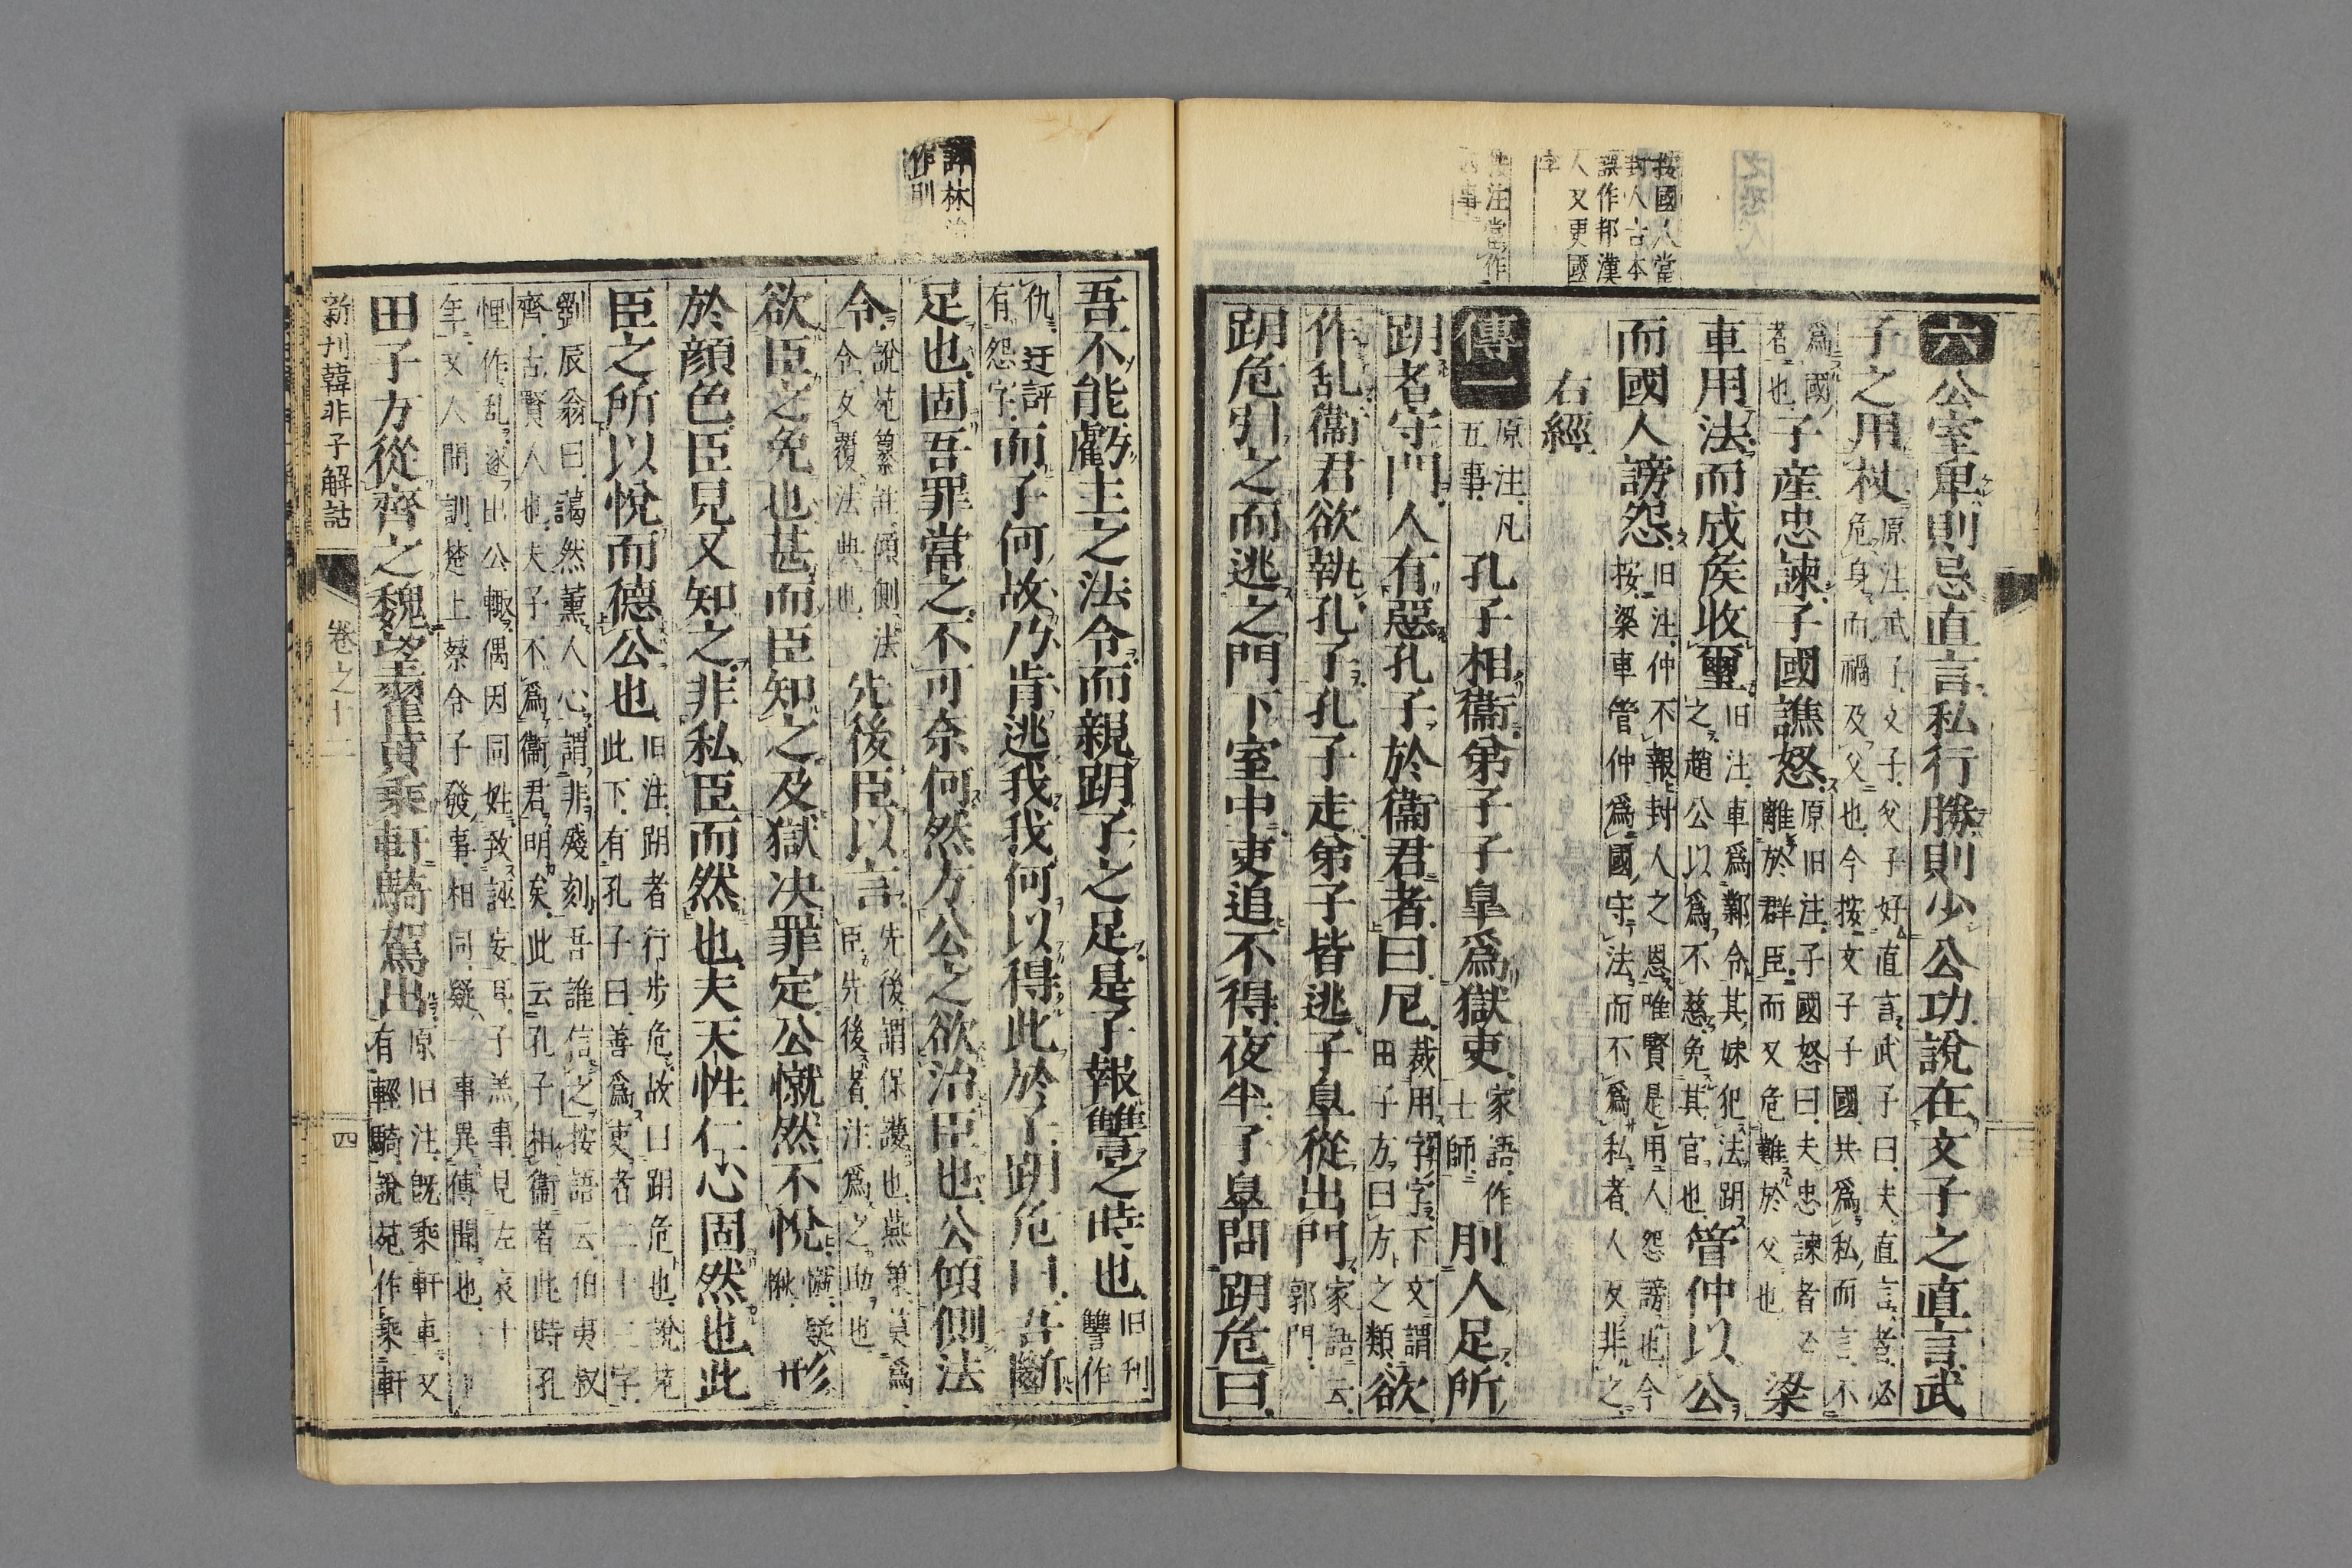 按國人當
封人古本
誤作邦漢
人又更國
字
按注當作
六公室卑則忌直言私行勝則少公功說在文子之直言武
子之用杖原注武子文子父子好直言武子曰夫直言者必
危身而禍及父也今按文子子國共爲私而言不
爲國
者也子產忠諫子國譙怒原旧注子國怒曰夫忠諫者
離於群臣而又危難於父也梁
車用法而成矦收璽旧注車爲鄴令其妹犯法刖
之趙公以爲不慈免其官也管仲以公
而國人謗怨旧注仲不報封人之恩唯賢是用人怨謗也今
按梁車管仲爲國守法而不爲私者人又非之
右經
傳一原注凡
五事孔子相衞弟子子臯爲獄吏家語作
士師刖人足所
跀者守門人有惡孔子於衞君者曰尼裁用字字下文謂
田子方曰方之類欲
作乱衞君欲執孔子孔子走弟子皆逃子臯從出門家語云
郭門
跀危引之而逃之門下室中吏追不得夜半子臯問跀危曰
評林治
作則
吾不能虧主之法令而親跀子之足是子報讐之時也旧刊
讐作
仇迂評
有怨字而子何故乃肯逃我我何以得此於子跀危曰吾斷
足也固吾罪當之不可奈何然方公之欲治臣也公傾側法
令說苑纂註傾側法
令反覆法典也先後臣以言先後謂保護也燕策莫爲
臣先後者注爲之助也
欲臣之免也甚而臣知之及獄决罪定公憱然不悅形
於顔色臣見又知之非私臣而然也夫天性仁心固然也此
臣之所以悅而德公也旧注跀者行步危故曰跀危也說苑
此下有孔子曰善爲吏者二十三字
劉辰翁曰藹然薰人心謂非殘刻吾誰信之按語云伯夷叔
齊古賢人也夫子不爲衞君明矣此云孔子相衞者此時孔
悝作乱逐出公輙偶因同姓致誣妄耳子羔事見左哀十
年又人間訓楚上蔡令子發事相同疑一事異傳聞也
田子方從齊之魏望翟黄乘軒騎駕出原旧注旣乘軒車又
有輕騎說苑作乘軒
新刊韓非子解詁
卷之十二
四